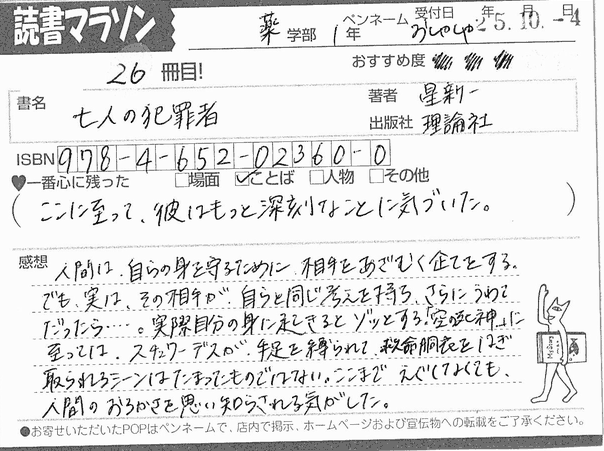 読書マラソン
薬 学部 1年 ペンネーム おしゃしゃ 受付日 年 月 日 25.10.-4
26 冊目! おすすめ度
書名 七人の犯罪者 著者 星新一
出版社 理論社
ISBN 978-4-652-02360-0
♥一番心に残った □場面 ☑ことば □人物 □その他
(ここに至って、彼はもっと深刻なことに気づいた。)
感想 人間は、自らの身を守るために、相手をあざむく企てをする。
でも、実は、その相手が、自らと同じ考えを持ち、さらにうわて
だったら…。実際自分の身に起きるとゾッとする。「空の死神」に
至っては、スチュワーデスが、手足を縛られて、救命胴衣をはぎ
取られるシーンはたまったものではない。ここまで えぐくなくても、
人間のおろかさを思い知らされる気がした。
●お寄せいただいたPOPはペンネームで、店内で掲示、ホームページおよび宣伝物への転載をご了承ください。